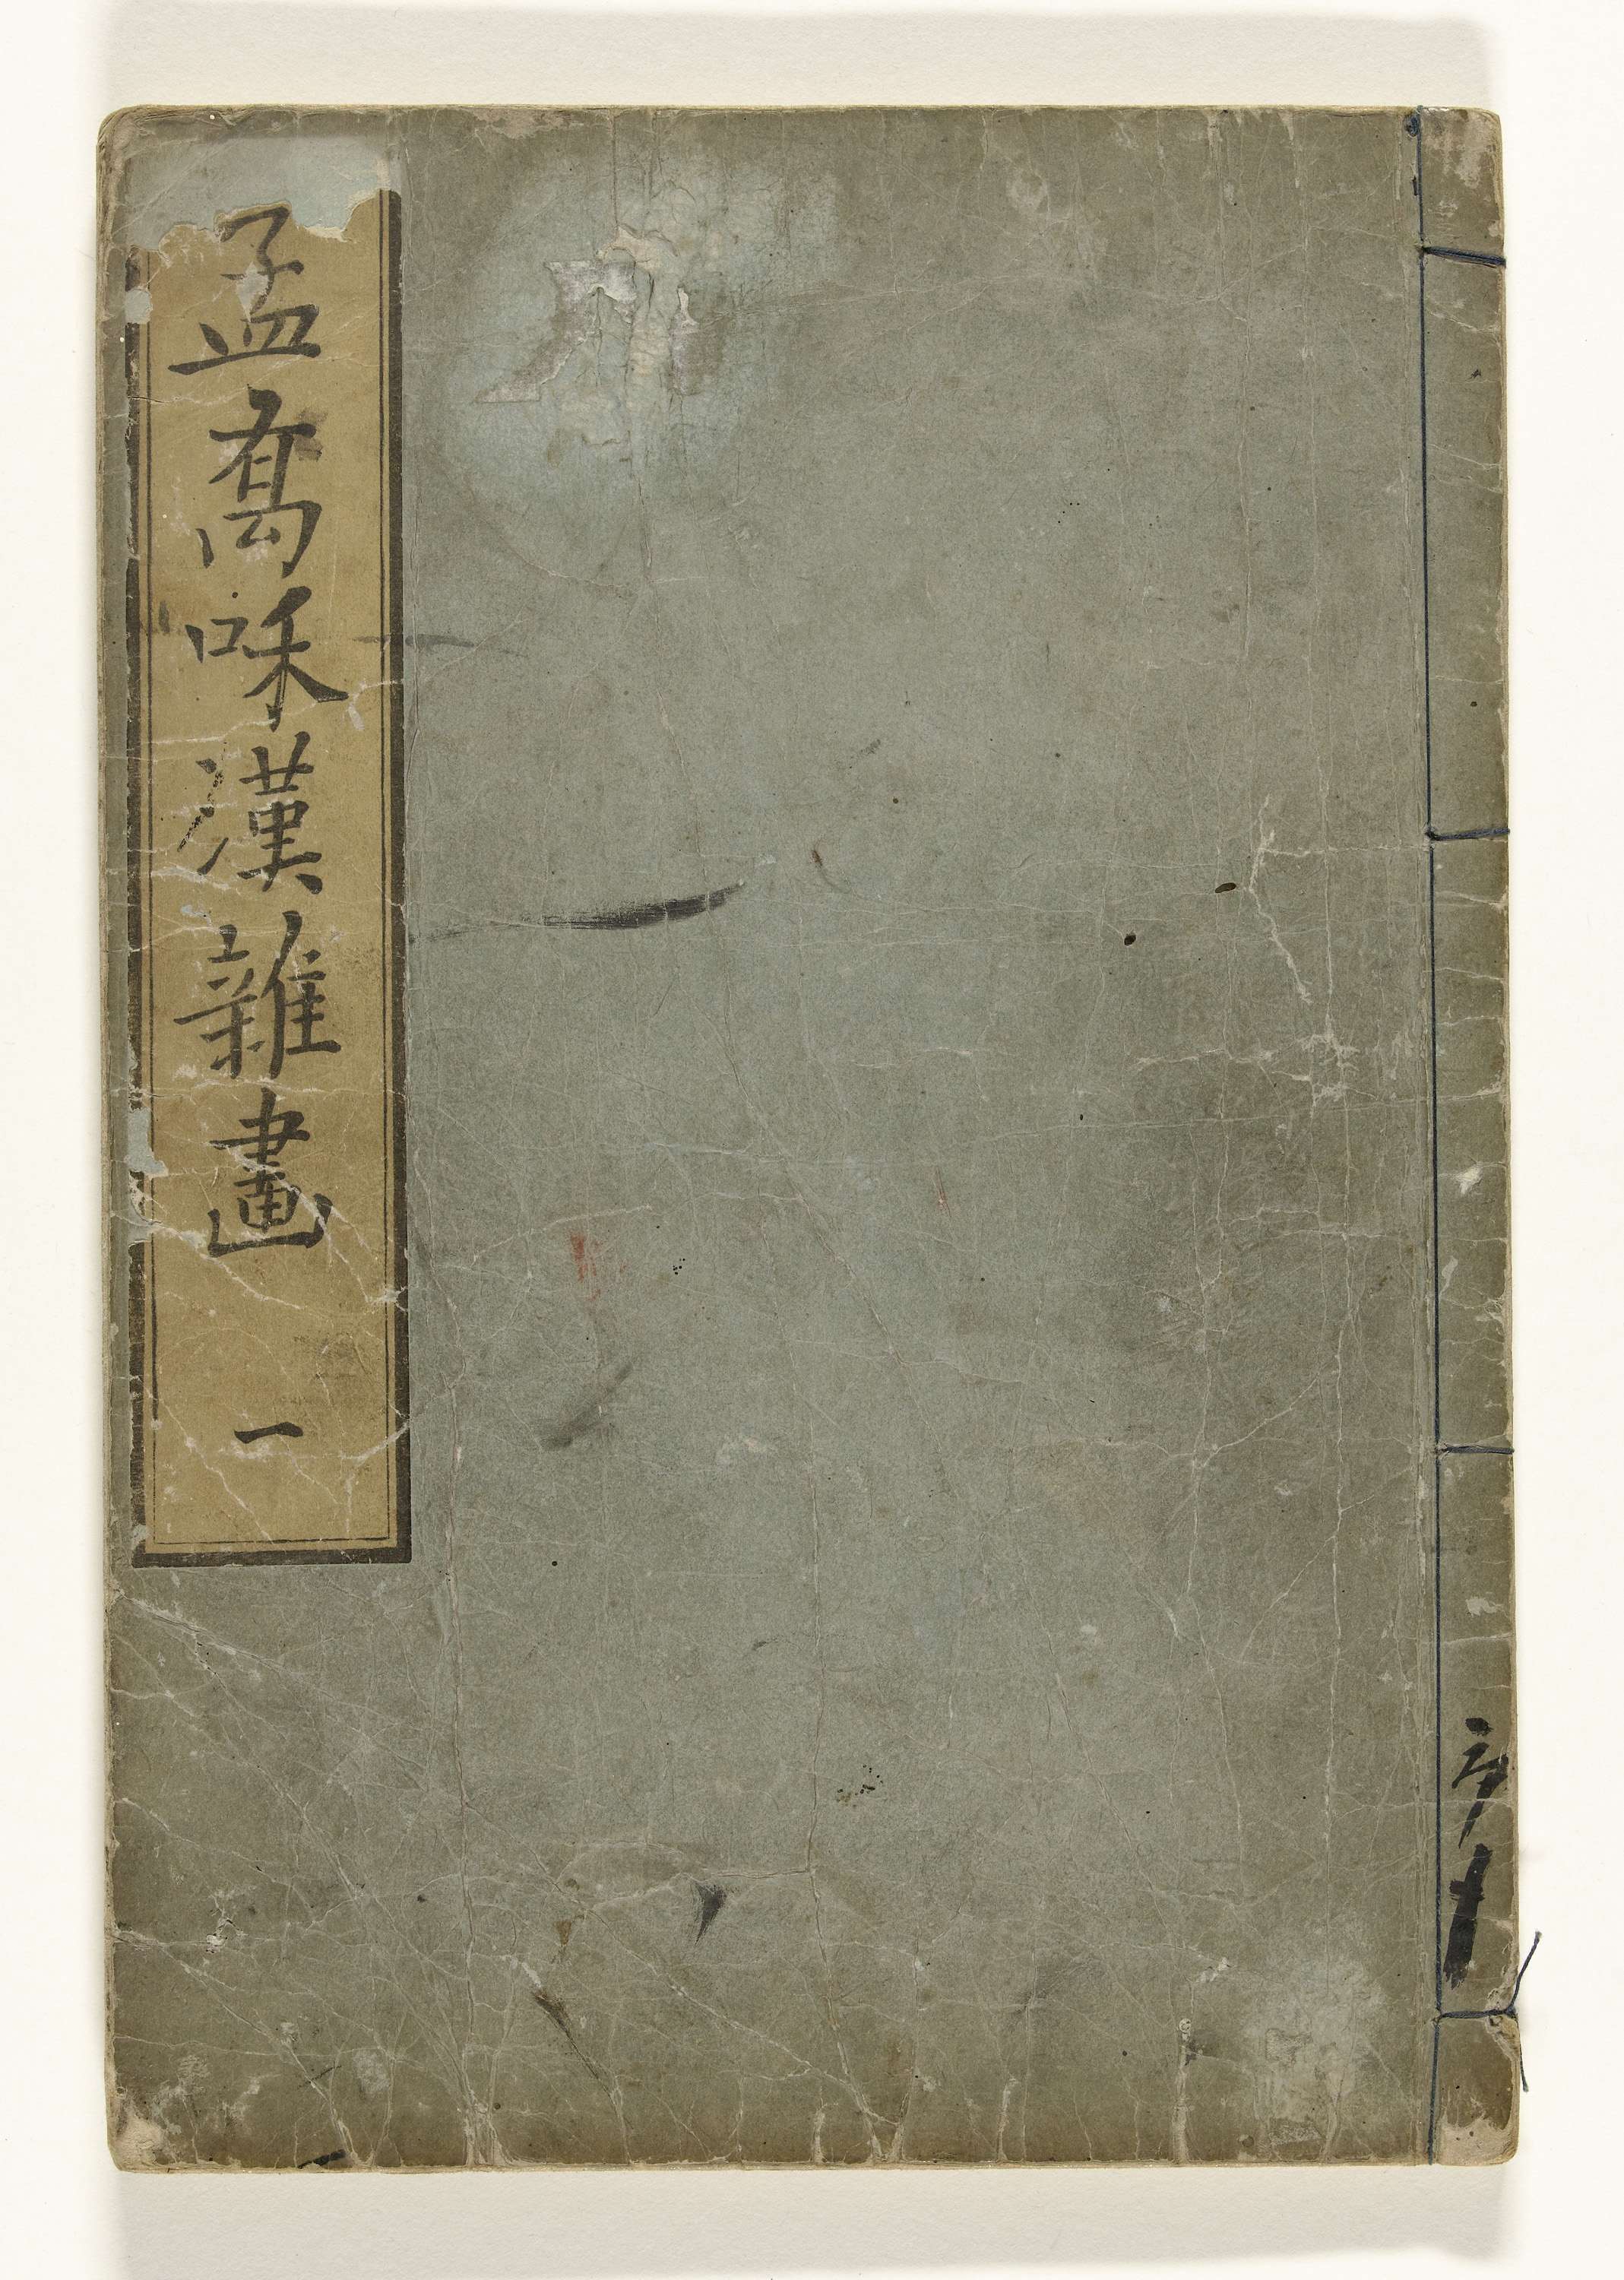 孟喬咊漢雜畫
一